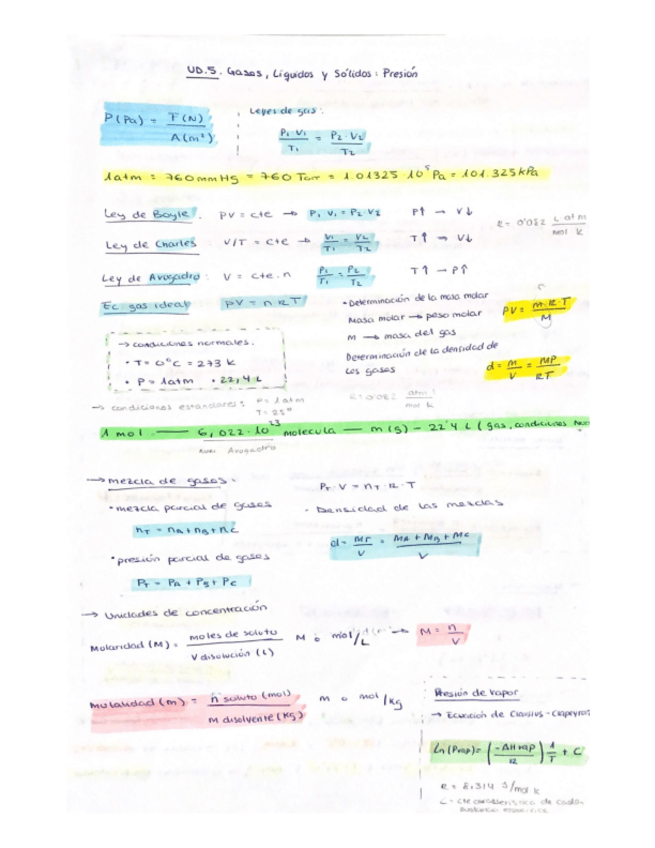 UD.5. Gases, Líquidos y Sólidos: Presión
P(Pa) = F(N) / A(m²)
Leyes de gas:
P₁·V₁ / T₁ = P₂·V₂ / T₂
1atm = 760mmHg = 760 Torr = 1.01325 10⁵ Pa = 101.325kPa
Ley de Boyle. PV = cte → P₁ V₁ = P₂ V₂ P↑ → V↓
R = 0'082 L atm / mol k
Ley de Charles V/T = cte → V₁/T₁ = V₂/T₂ T↑ → V↓
Ley de Avogadro: V = cte.n P₁/T₁ = P₂/T₂ T↑ → P↑
Ec. gas ideal PV = n R T
• Determinación de la masa molar
Masa molar → peso molar
PV = m.R.T / M
M → masa del gas
Determinación de la densidad de
los gases
d = m/V = MP/RT
→ condiciones normales:
• T = 0°C = 273 k
• P = 1atm • 22,4 L
→ condiciones estandares: P = 1atm
T = 25°
R = 0'082 atm l / mol k
1 mol — 6,022·10²³ molecula — m(g) – 22'4 L (gas, condiciones
num. Avogadro
→ mezcla de gases:
P_T · V = n_T · R · T
• mezcla parcial de gases
· Densidad de las mezclas
n_T = n_A + n_B + n_C
d = m_T / V = m_A + m_B + m_C / V
• presión parcial de gases
P_T = P_A + P_B + P_C
→ Unidades de concentración
Molaridad (M) = moles de soluto / V disolución (L) M o mol/L → M = n/V
Molalidad (m) = n soluto (mol) / m disolvente (Kg) m o mol/kg
Presión de vapor
→ Ecuación de Clausius-Clapeyron
Ln (Pvap) = (-ΔH vap / R) 1/T + C
R = 8,314 J/mol k
C - cte caracteristica de cada
sustancia